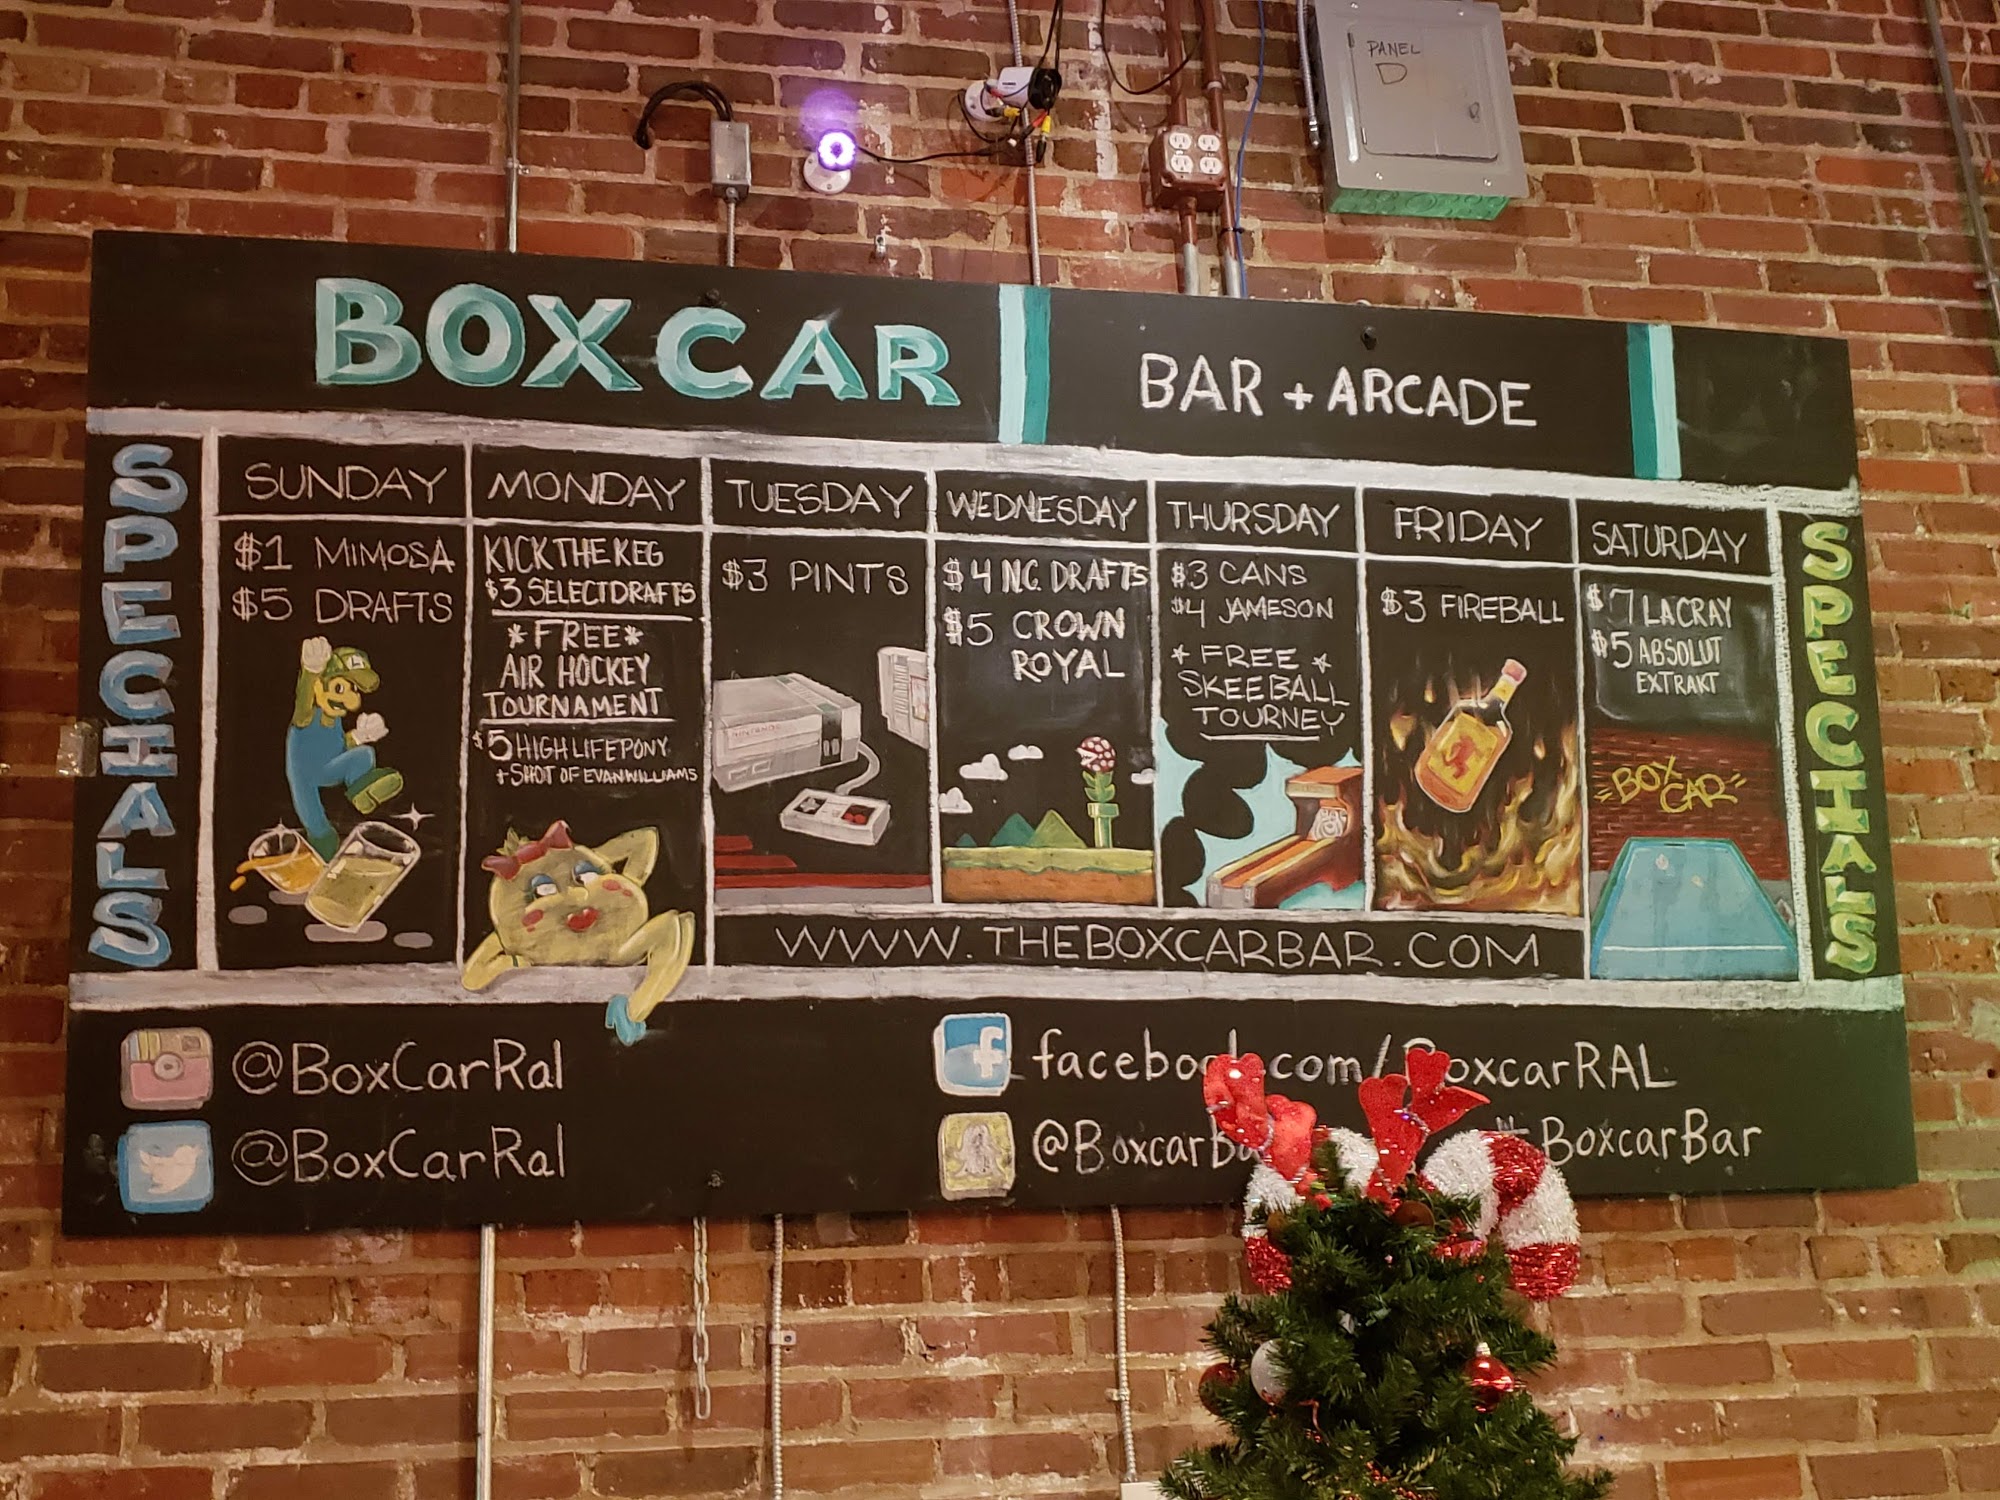 PANEL
D
BOXCAR
BAR + ARCADE
SPECIALS
SUNDAY
$1 MIMOSA
$5 DRAFTS
MONDAY
KICK THE KEG
$3 SELECT DRAFTS
*FREE*
AIR HOCKEY
TOURNAMENT
$5 HIGH LIFE PONY
+ SHOT OF EVAN WILLIAMS
TUESDAY
$3 PINTS
NINTENDO
WEDNESDAY
$4 N.C. DRAFTS
$5 CROWN
ROYAL
THURSDAY
$3 CANS
$4 JAMESON
* FREE *
SKEEBALL
TOURNEY
FRIDAY
$3 FIREBALL
SATURDAY
$7 LACRAY
$5 ABSOLUT
EXTRAKT
"BOX
CAR"
SPECIALS
WWW.THEBOXCARBAR.COM
@BoxCarRal
facebook.com/BoxcarRAL
@BoxCarRal
@BoxcarBa
#BoxcarBar